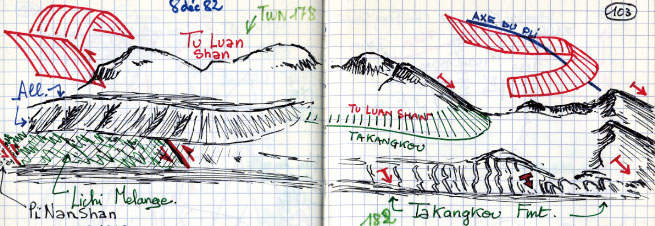 8 déc 82
TWN 178
Tu Luan
Shan
All.
Lichi Melange.
Pi Nan Shan
103
AXE DU PLI
TU LUAN SHAN
TAKANGKOU
182
Takangkou Fmt.